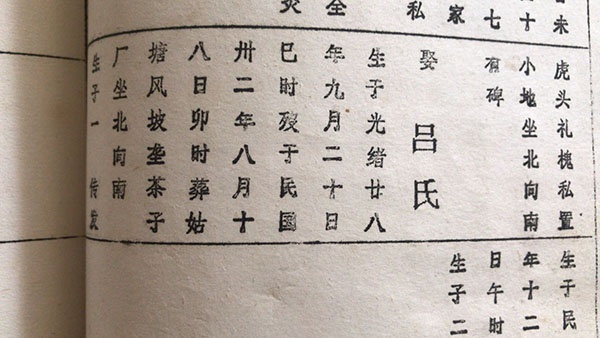 未
十
七
家
私
全
虎头礼槐私置
小地坐北向南
有碑
娶 吕氏
生于光绪廿八
年九月二十日
巳时殁于民国
卅二年八月十
八日卯时葬姑
塘风坡垄茶子
厂坐北向南
生子一 传发
生于民
年十二
日午时
生子二